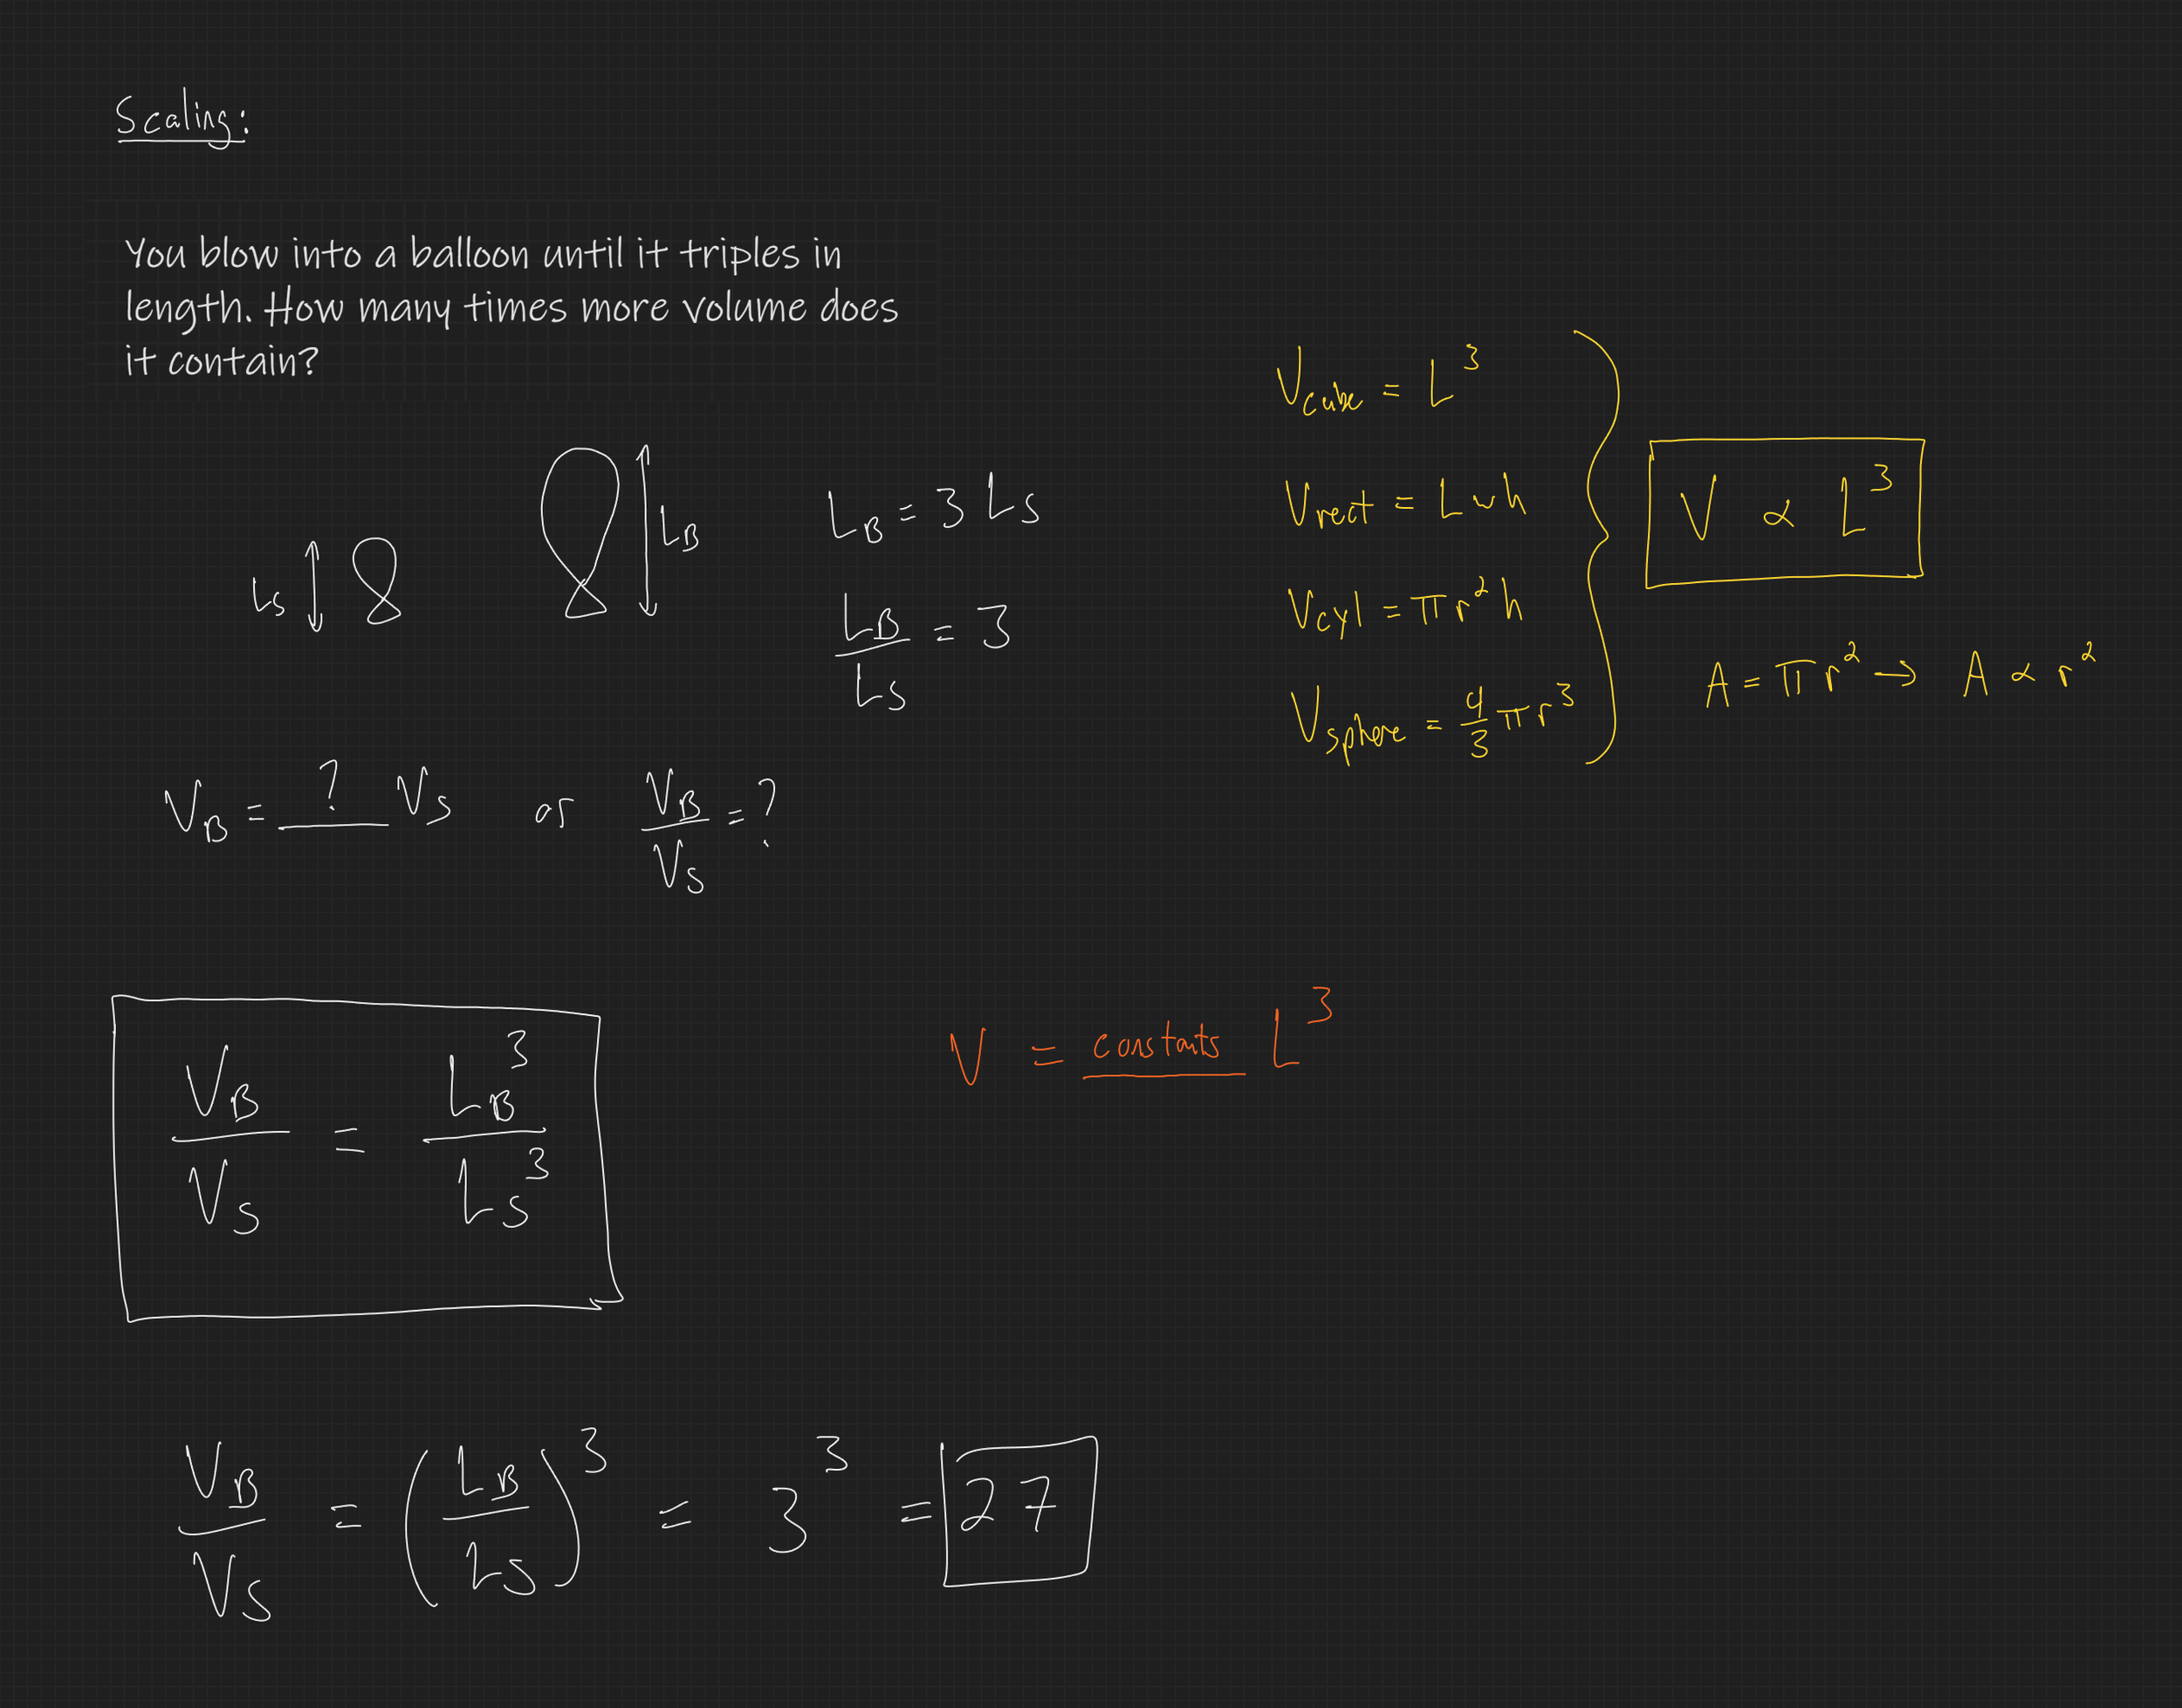 Scaling:
You blow into a balloon until it triples in
length. How many times more volume does
it contain?
L_S
L_B
L_B = 3 L_S
L_B / L_S = 3
V_cube = L^3
V_rect = L w h
V_cyl = π r^2 h
V_sphere = 4/3 π r^3
V ∝ L^3
A = π r^2 → A ∝ r^2
V_B = ? V_S or V_B / V_S = ?
V_B / V_S = L_B^3 / L_S^3
V = constants L^3
V_B / V_S = (L_B / L_S)^3 = 3^3 = 27